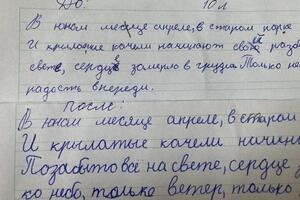 До: 10л
В юном месяце апреле, в старом парке
И крылатые качели начинают свой разб
свете, сердце замерло в груди. Только не
радость впереди.
после:
В юном месяце апреле, в старом
И крылатые качели начин
Позабыто всё на свете, сердце з
ко небо, только ветер, только